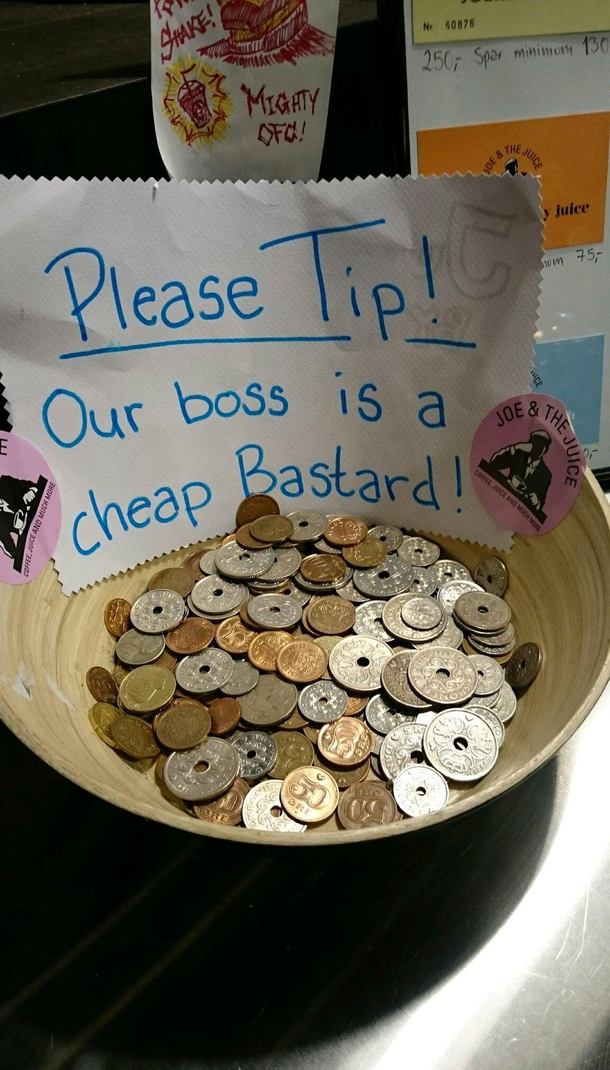 SHAKE!
MIGHTY
OFG!
Nr. 60876
250,- Spar minimum 130
JOE & THE JUICE
juice
75,-
Please Tip!
Our boss is a
cheap Bastard!
JOE & THE JUICE
COFFEE, JUICE AND MUCH MORE
COFFEE, JUICE AND MUCH MORE
50
ØRE